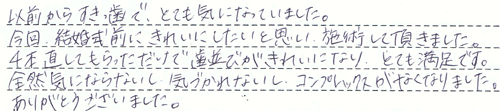 以前からすき歯で、とても気になっていました。
今回、結婚式前にきれいにしたいと思い、施術して頂きました。
4本直してもらっただけで歯並びがきれいになり、とても満足です。
全然気にならないし、気づかれないし、コンプレックスがなくなりました。
ありがとうございました。